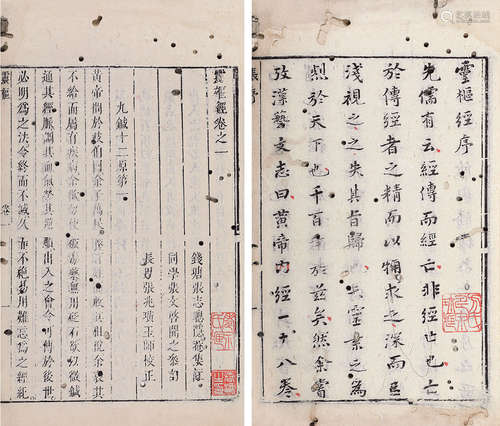 靈樞經序
先儒有云經傳而經亡非經亡也亡
於傳經者之精而以觕求之深而㠯
淺視之之失其旨歸也夫靈素之為
烈於天下也千百年於茲矣然余嘗
攷漢藝文志曰黃帝內經一十八卷
靈樞經卷之一
錢塘張志聰隱菴集註
同學張文啟開之參訂
長男張兆璜玉師校正
九鍼十二原第一
黃帝問於岐伯曰余子萬民養百姓而收其租稅余哀其
不給而屬有疾病余欲勿使被毒藥無用砭石欲以微鍼
通其經脈調其血氣營其逆順出入之會令可傳於後世
必明爲之法令終而不滅久而不絶易用難忘爲之經紀
靈樞 卷一